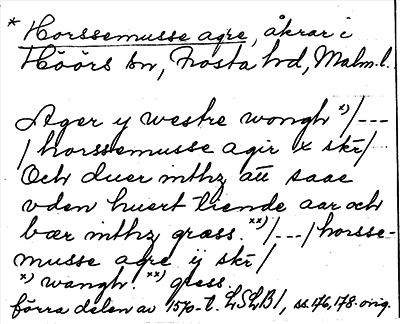 * Horssemusse agre, åkrar i
Höörs sn, Frosta hd, Malm.l.
Ager y westre wongh x)/---
/horssemusse agir x skr/
Och duer inthz att saae
vden huert tiende aar och
bær inthz græss. xx)/---/horsse-
musse agre ij skr/
x) wangh. xx) gless
förra delen av 1570-t. LSLB1, ss. 176, 178. orig.